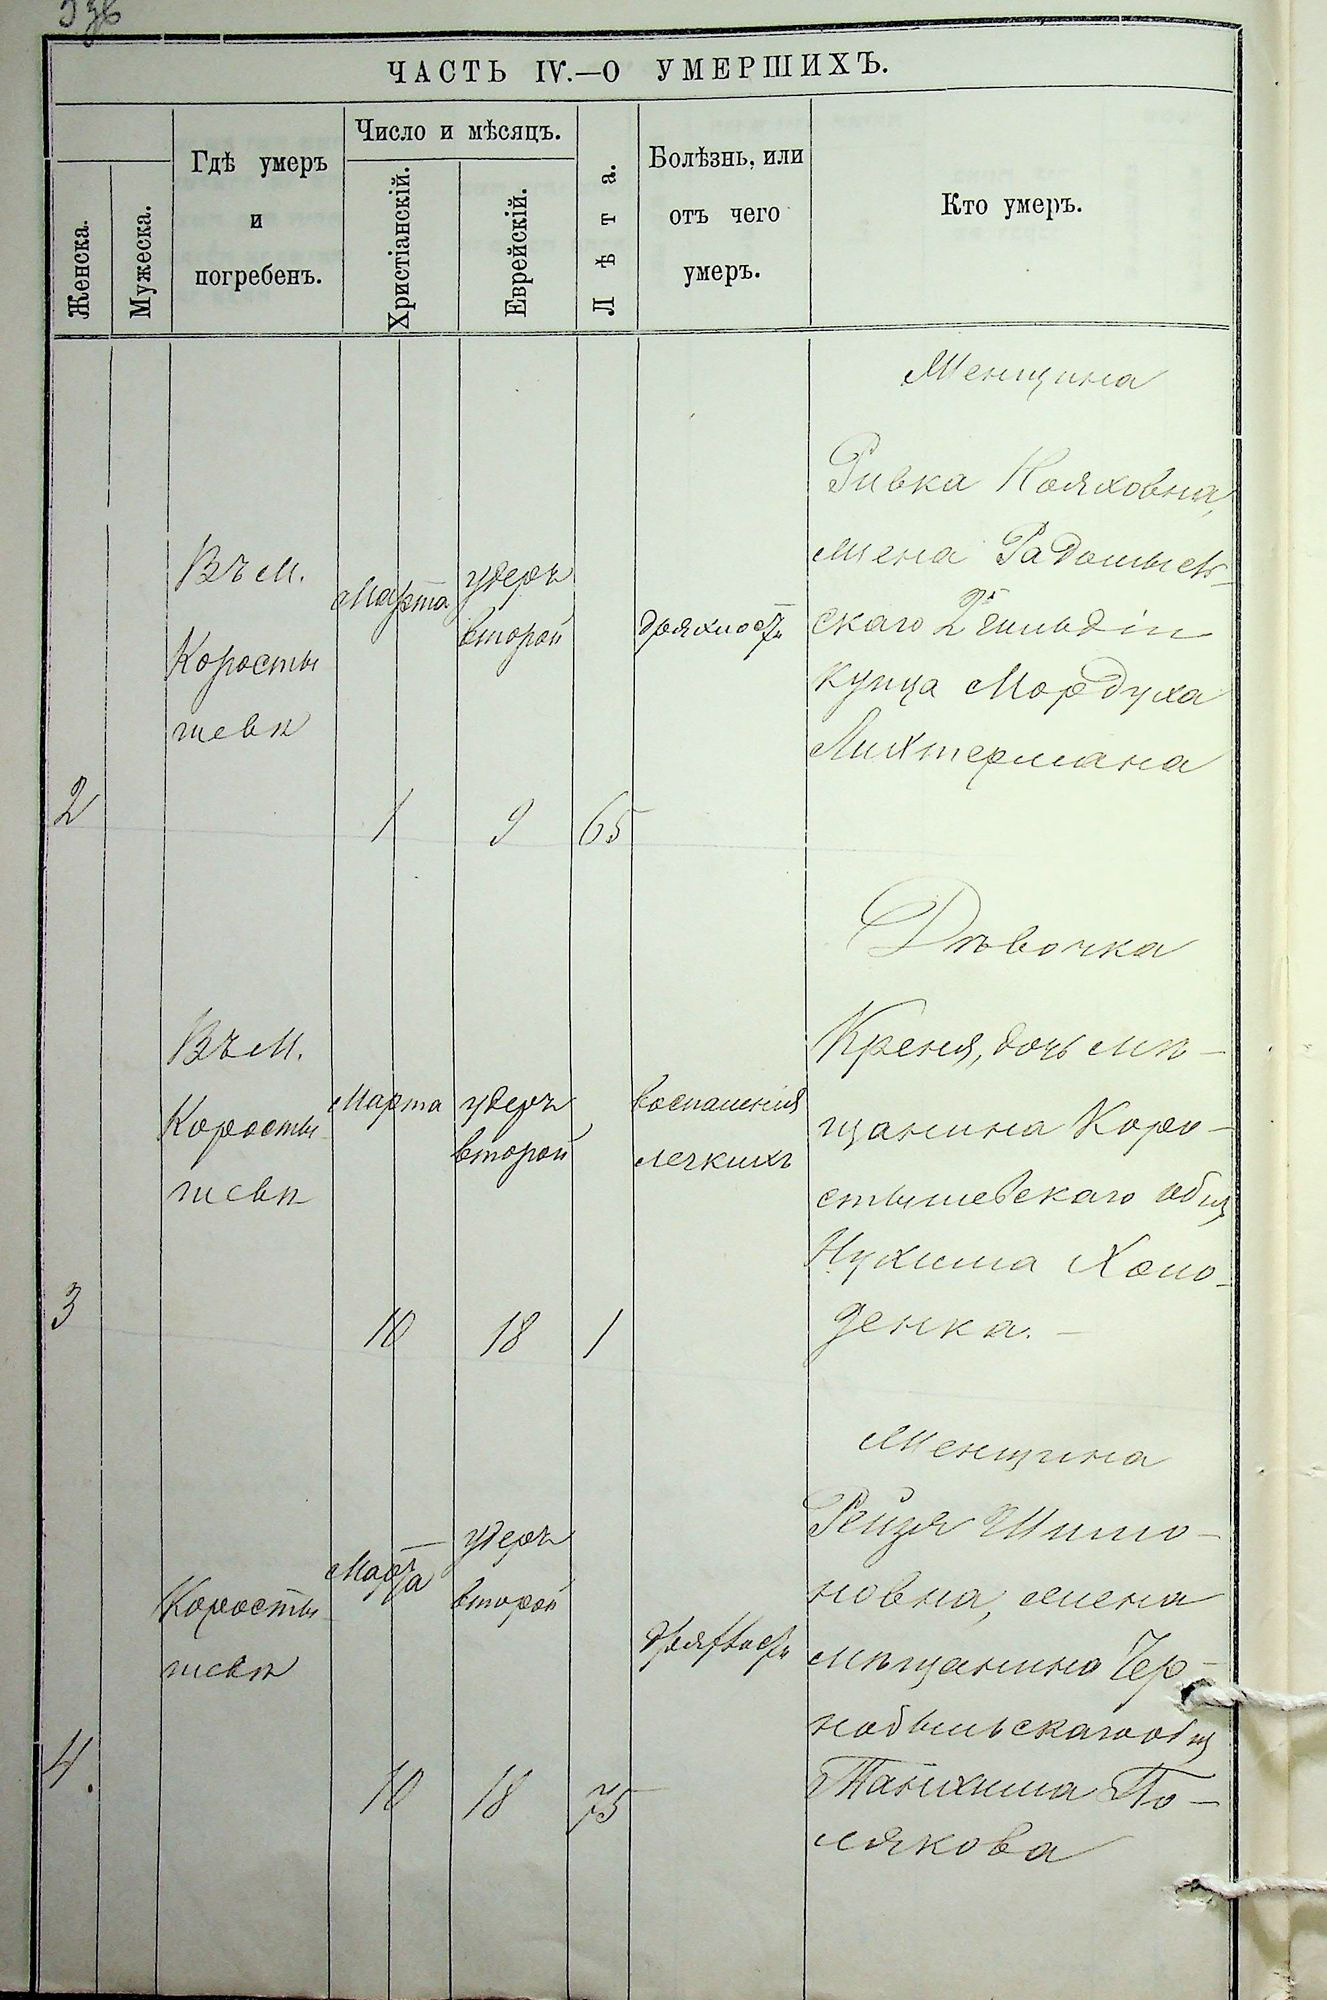 ЧАСТЬ IV.—О УМЕРШИХЪ.
Женска.
Мужеска.
Гдѣ умеръ
и
погребенъ.
Число и мѣсяцъ.
Христіанскій.
Еврейскій.
Лѣта.
Болѣзнь, или
отъ чего
умеръ.
Кто умеръ.
2
Въ м.
Коросты
шевѣ
Марта
1
удеръ
второй
9
65
дряхлость
Женщина
Ривка Нояховна,
жена Радомысль-
скаго 2й гильдіи
купца Мордуха
Лихтермана
3
Въ м.
Коросты
шевѣ
Марта
10
удеръ
второй
18
1
воспаленія
легкихъ
Дѣвочка
Креня, дочь мѣ-
щанина Коро-
стышевскаго общ
Нухима Холо-
денка. —
4.
Коросты
шевѣ
Марта
10
удеръ
второй
18
75
дряхлость
Женщина
Рейзя Шимо-
новна, жена
мѣщанина Чер-
нобыльскаго общ
Танхима По-
лякова